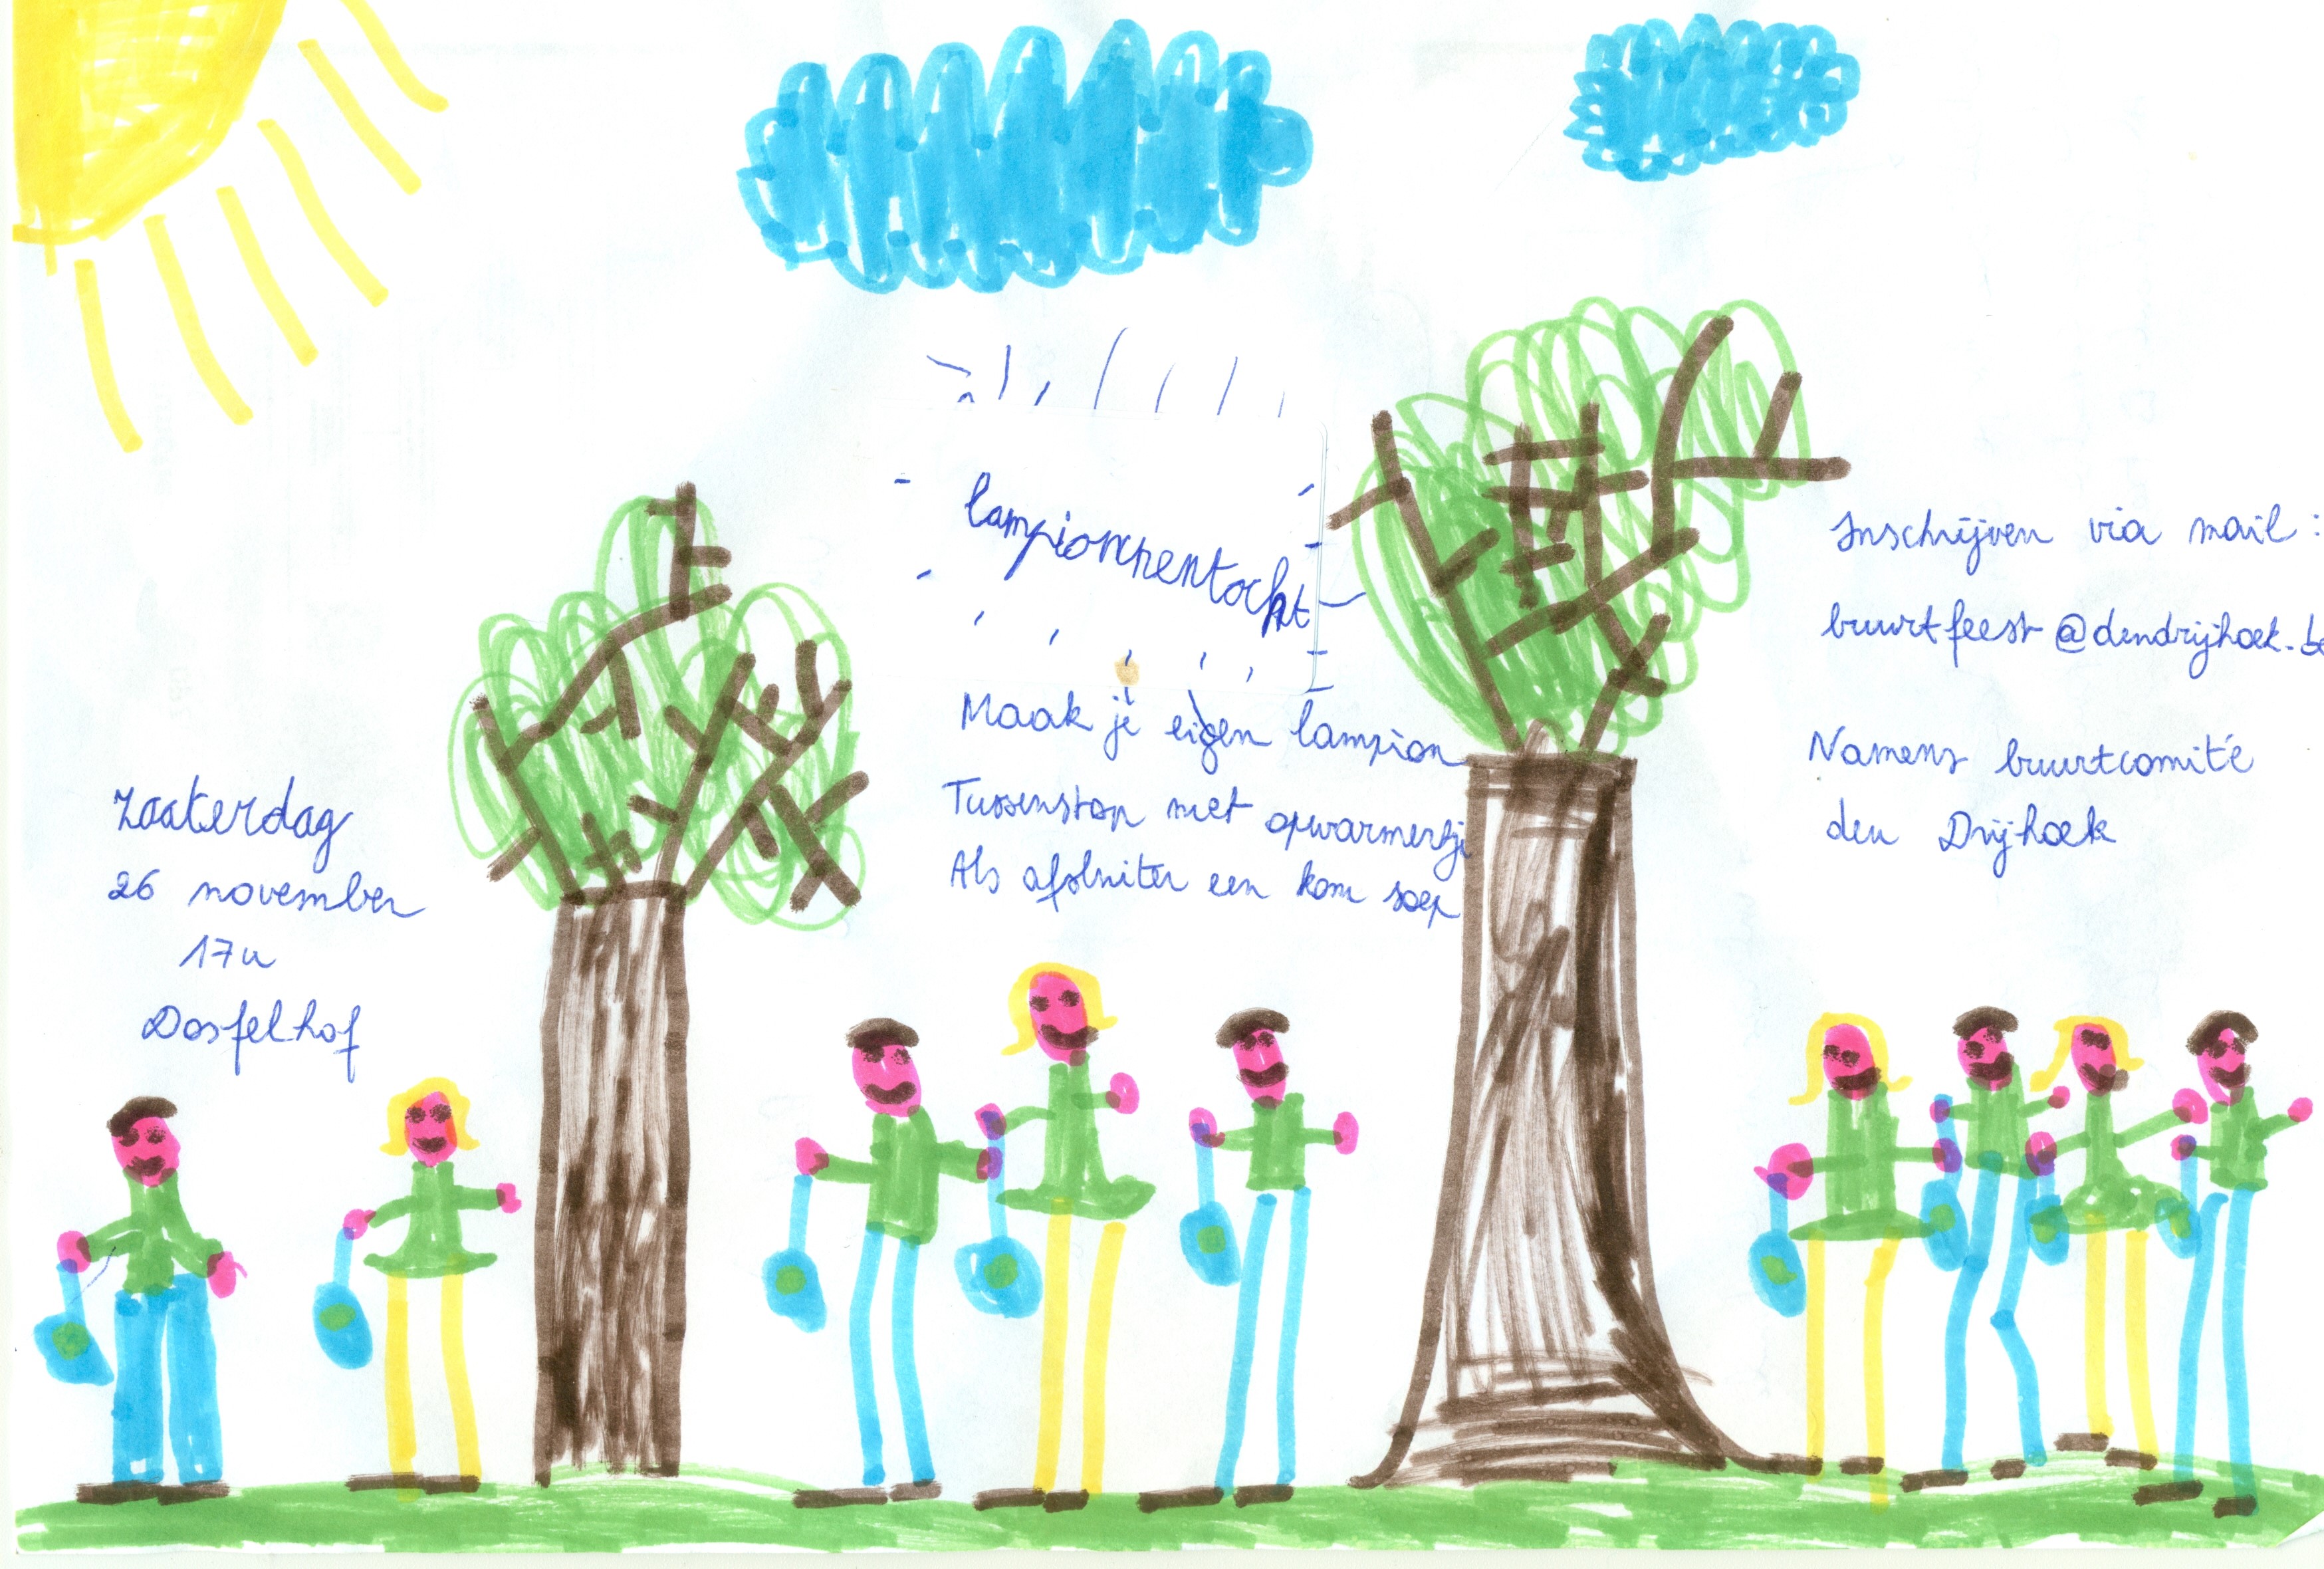 lampionnentocht
Maak je eigen lampion
Tussenstop met opwarmertje
Als afsluiter een kom soep
zaaterdag
26 november
17u
Dosfelhof
Inschrijven via mail:
buurtfeest@dendrijhoek.be
Namens buurtcomité
den Drijhoek